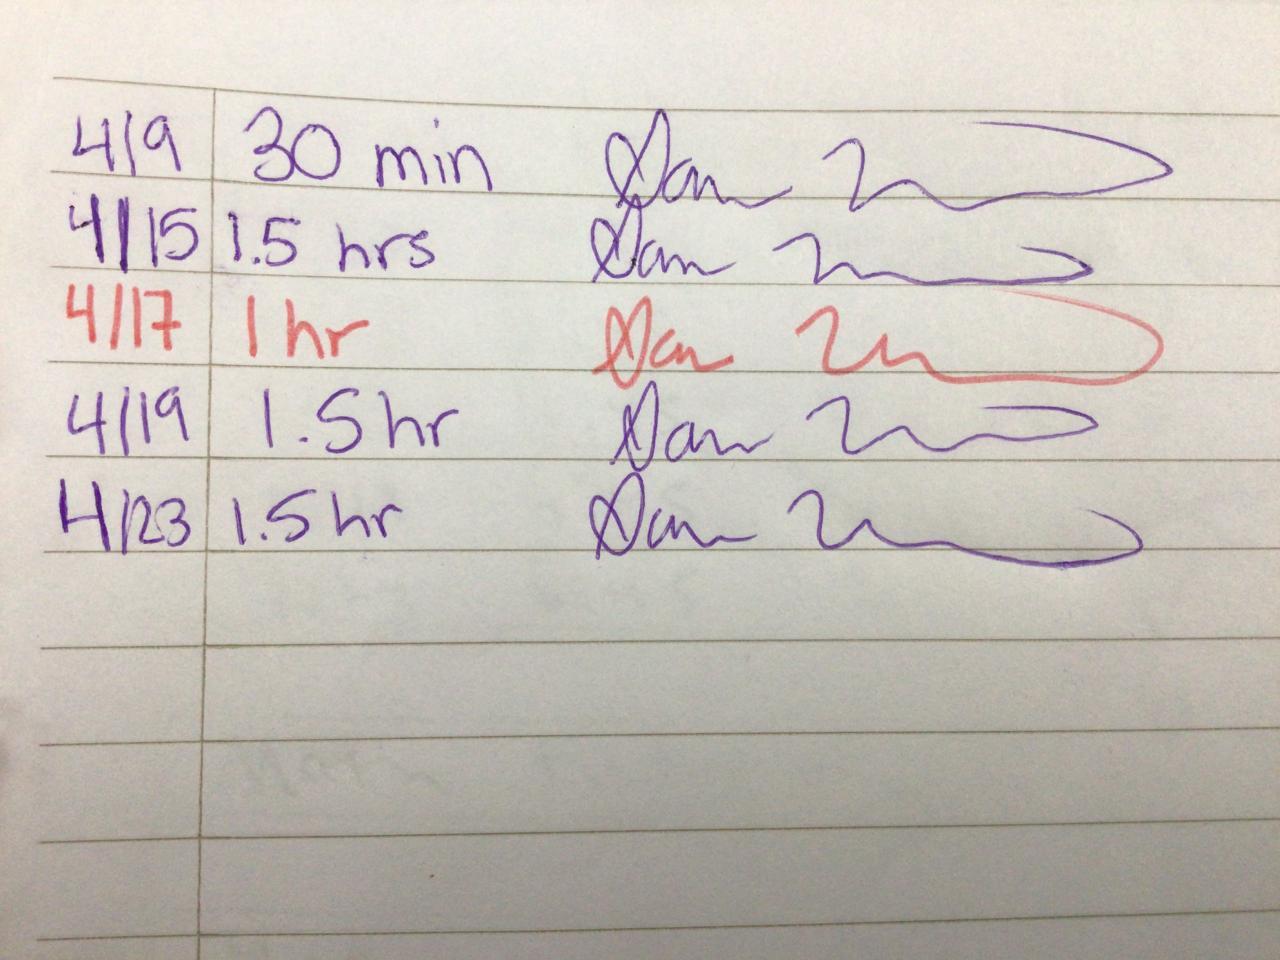 4/9 30 min Sam
4/15 1.5 hrs Sam
4/17 1 hr Sam
4/19 1.5 hr Sam
4/23 1.5 hr Sam